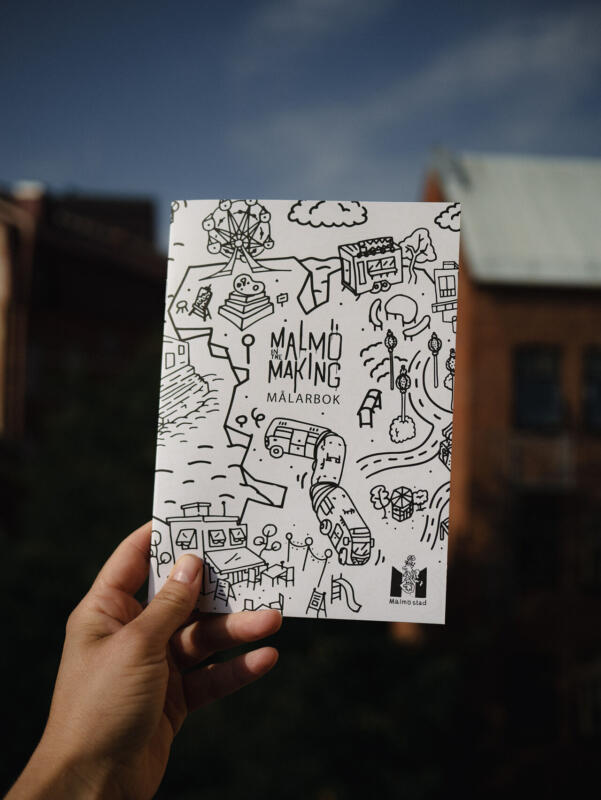 MALMÖ
IN THE
MAKING
MÅLARBOK
Malmö stad